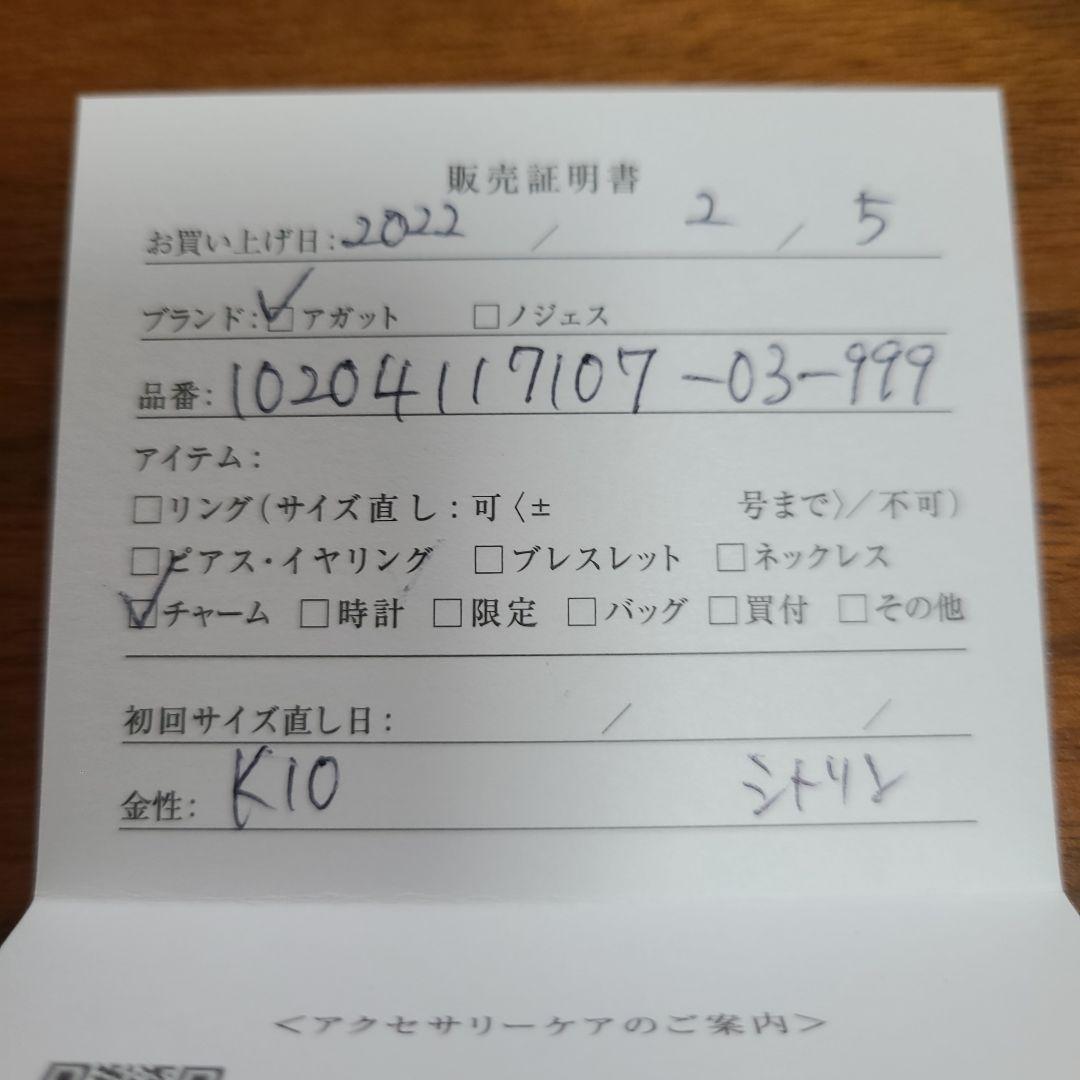 販売証明書
お買い上げ日:2022 / 2 / 5
ブランド:☑アガット □ノジェス
品番:10204117107-03-999
アイテム:
□リング(サイズ直し:可〈± 号まで〉/不可)
□ピアス・イヤリング □ブレスレット □ネックレス
☑チャーム □時計 □限定 □バッグ □買付 □その他
初回サイズ直し日: / /
金性:K10 シトリン
<アクセサリーケアのご案内>